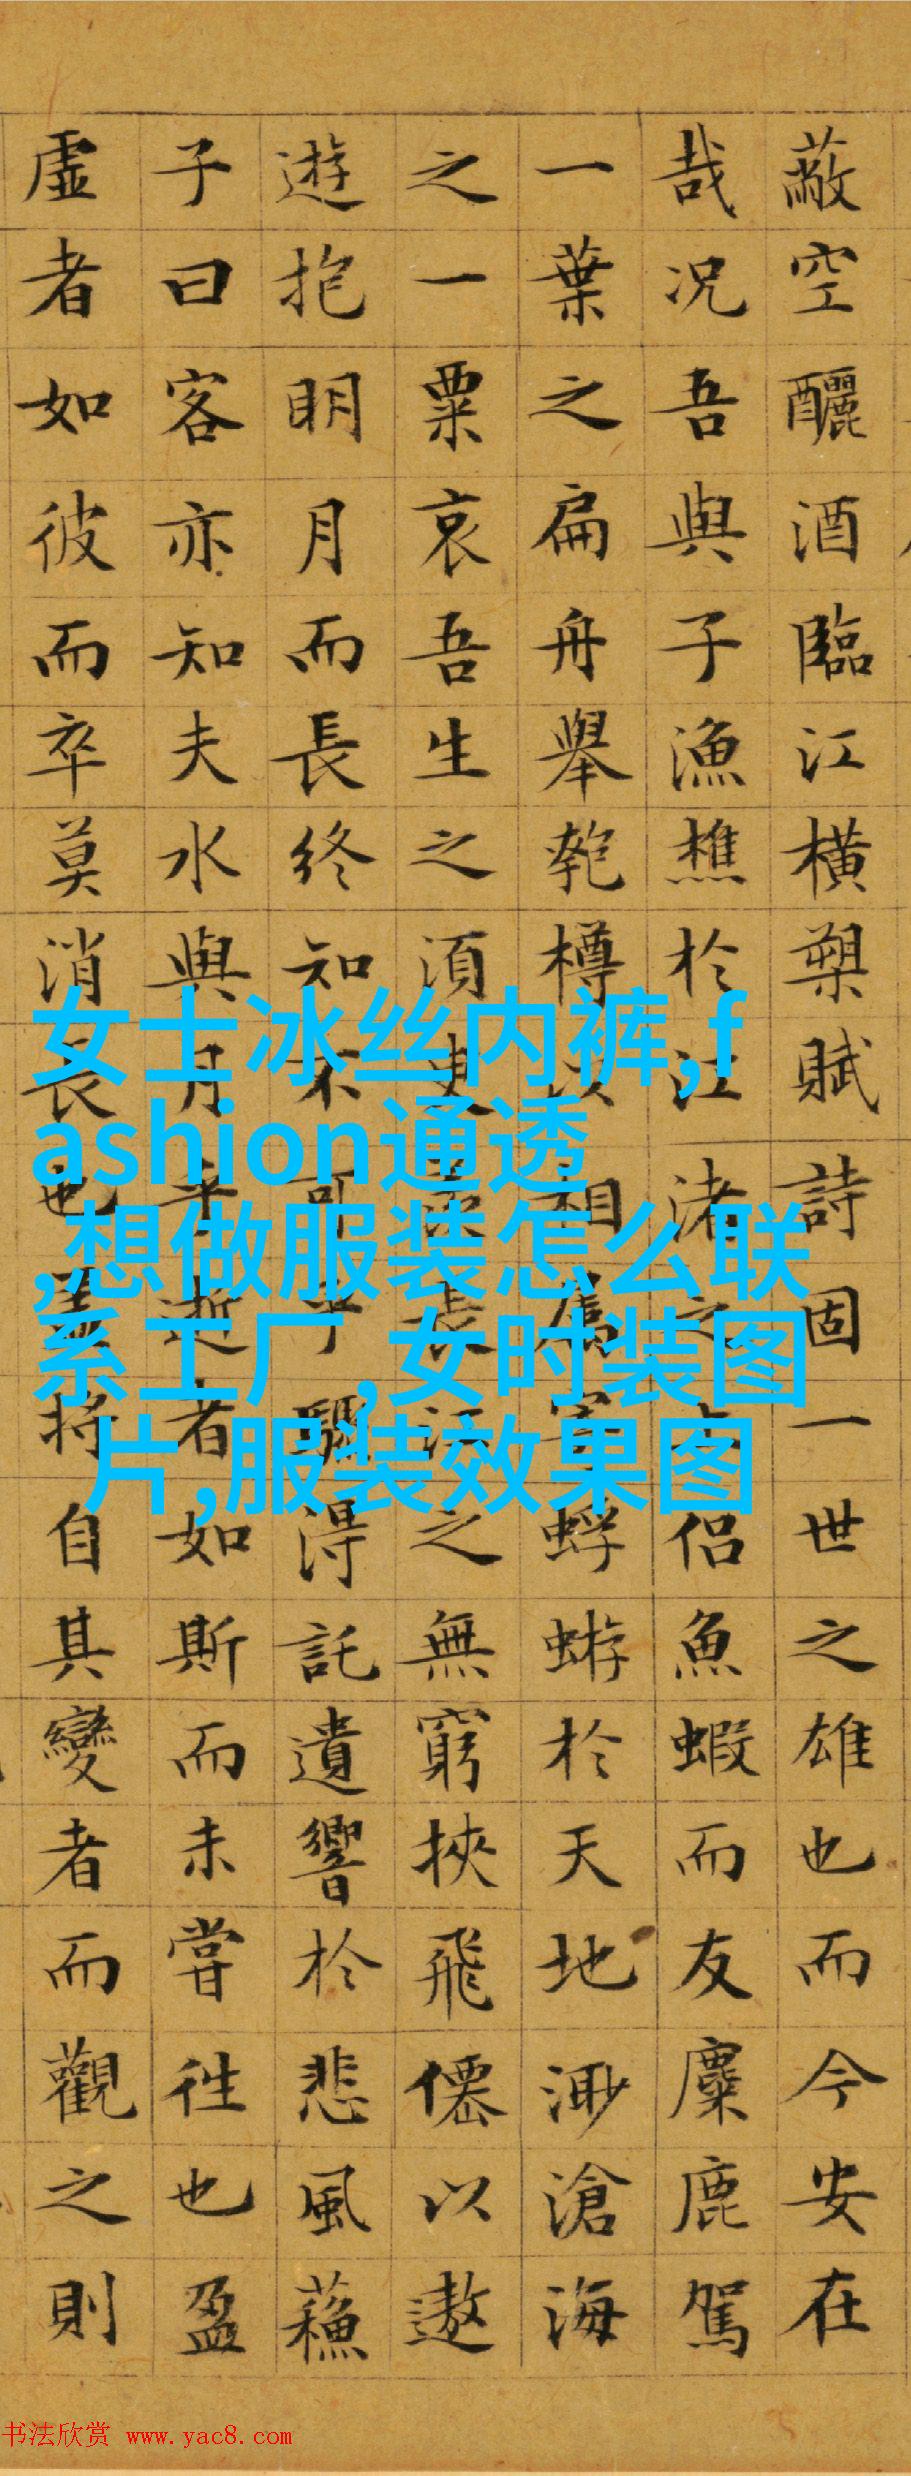 蔽空釃酒臨江橫槊賦詩固一世之雄也而今安在
哉况吾與子漁樵於江渚之上侶魚蝦而友麋鹿駕
一葉之扁舟舉匏樽以相屬寄蜉蝣於天地渺滄海
之一粟哀吾生之須臾羨長江之無窮挾飛僊以遨
遊抱明月而長終知不可乎驟得託遺響於悲風蘇
子曰客亦知夫水與月乎逝者如斯而未嘗徃也盈
虛者如彼而卒莫消長也蓋將自其變者而觀之則
女士冰丝内裤,f
ashion通透
,想做服装怎么联
系工厂,女时装图
片,服装效果图
书法欣赏 www.yac8.com